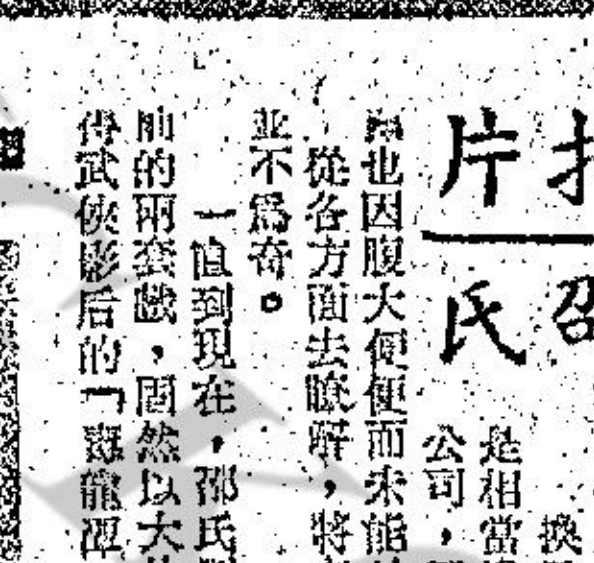 邵
片
氏
換
是相當
公司，
也因腹大便便而未能
從各方面去瞭解，將
並不爲奇。
一直到現在，邵氏
的兩套戲，固然以大
得武俠影后的「毒龍潭